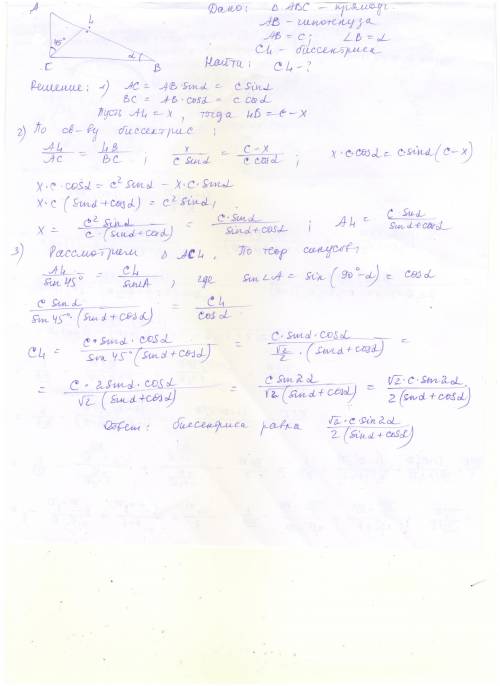 Дано: Δ ABC - прямоуг.
AB - гипотенуза
AB = c; ∠B = α
CL - биссектриса
Найти: CL - ?
A
L
45°
α
C
B
Решение: 1) AC = AB·sinα = c sinα
BC = AB·cosα = c cosα
Пусть AL = x, тогда LB = c - x
2) По св-ву биссектрис:
AL/AC = LB/BC ; x/(c sinα) = (c-x)/(c cosα) ; x·c·cosα = c·sinα(c-x)
x·c·cosα = c² sinα - x·c·sinα
x·c (sinα + cosα) = c² sinα;
x = c² sinα/(c·(sinα+cosα)) = c·sinα/(sinα+cosα) ; AL = c sinα/(sinα+cosα)
3) Рассмотрим Δ ACL. По теор синусов:
AL/sin45° = CL/sin∠A , где sin∠A = sin(90°-α) = cosα
c sinα/(sin45°·(sinα+cosα)) = CL/cosα
CL = c·sinα·cosα/(sin45°(sinα+cosα)) = c·sinα·cosα/(√2/2·(sinα+cosα)) =
= c·2sinα·cosα/(√2(sinα+cosα)) = c sin2α/(√2(sinα+cosα)) = √2·c·sin2α/(2(sinα+cosα))
Ответ: биссектриса равна √2·c sin2α/(2(sinα+cosα))